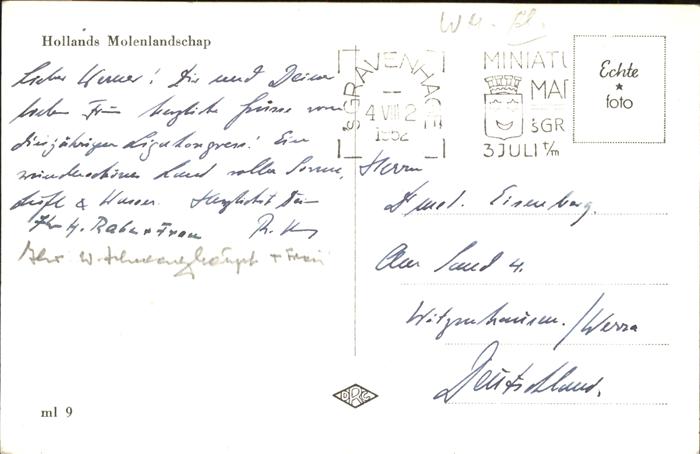 Wer. fl.
Hollands Molenlandschap
Lieber Werner! Dir und Deiner
lieben Frau herzliche Grüsse vom
diesjährigen Ligakongress! Ein
wunderschönes Land voller Sonne,
Luft & Wasser. Herzlichst Dein
H. Rabe + Frau R. K
Ihr W. + Frau
'sGRAVENHAGE
4 VIII 2
1952
MINIATU
MAD
'sGR
3 JULI t/m
Echte
★
foto
Herrn
Dr med. Eisenberg.
Am Sand 4.
Witzenhausen./Werra
Deutschland.
DRG
ml 9